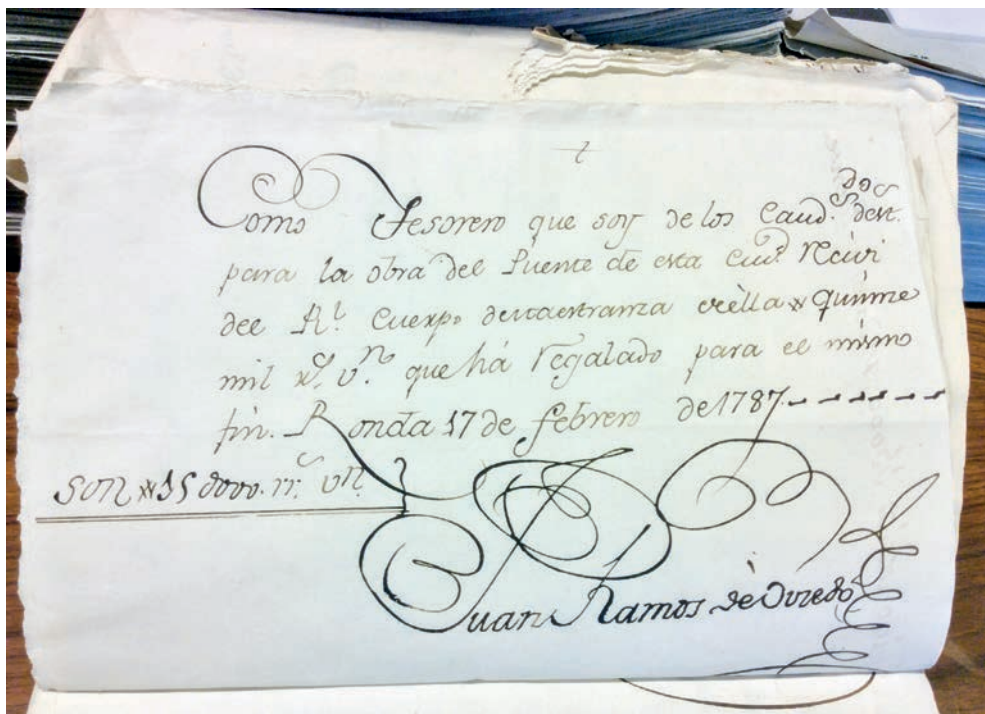 t
Como Tesorero que soy de los Caud.s dest.dos
para la obra del Puente de esta Ciud.d Recivi
del R.l Cuerpo de Maestranza de ella Quinze
mil r.s v.n que há regalado para el mismo
fin. Ronda 17 de febrero de 1787.
Son 15 000. rr.s vn.
Juan Ramos de Oviedo